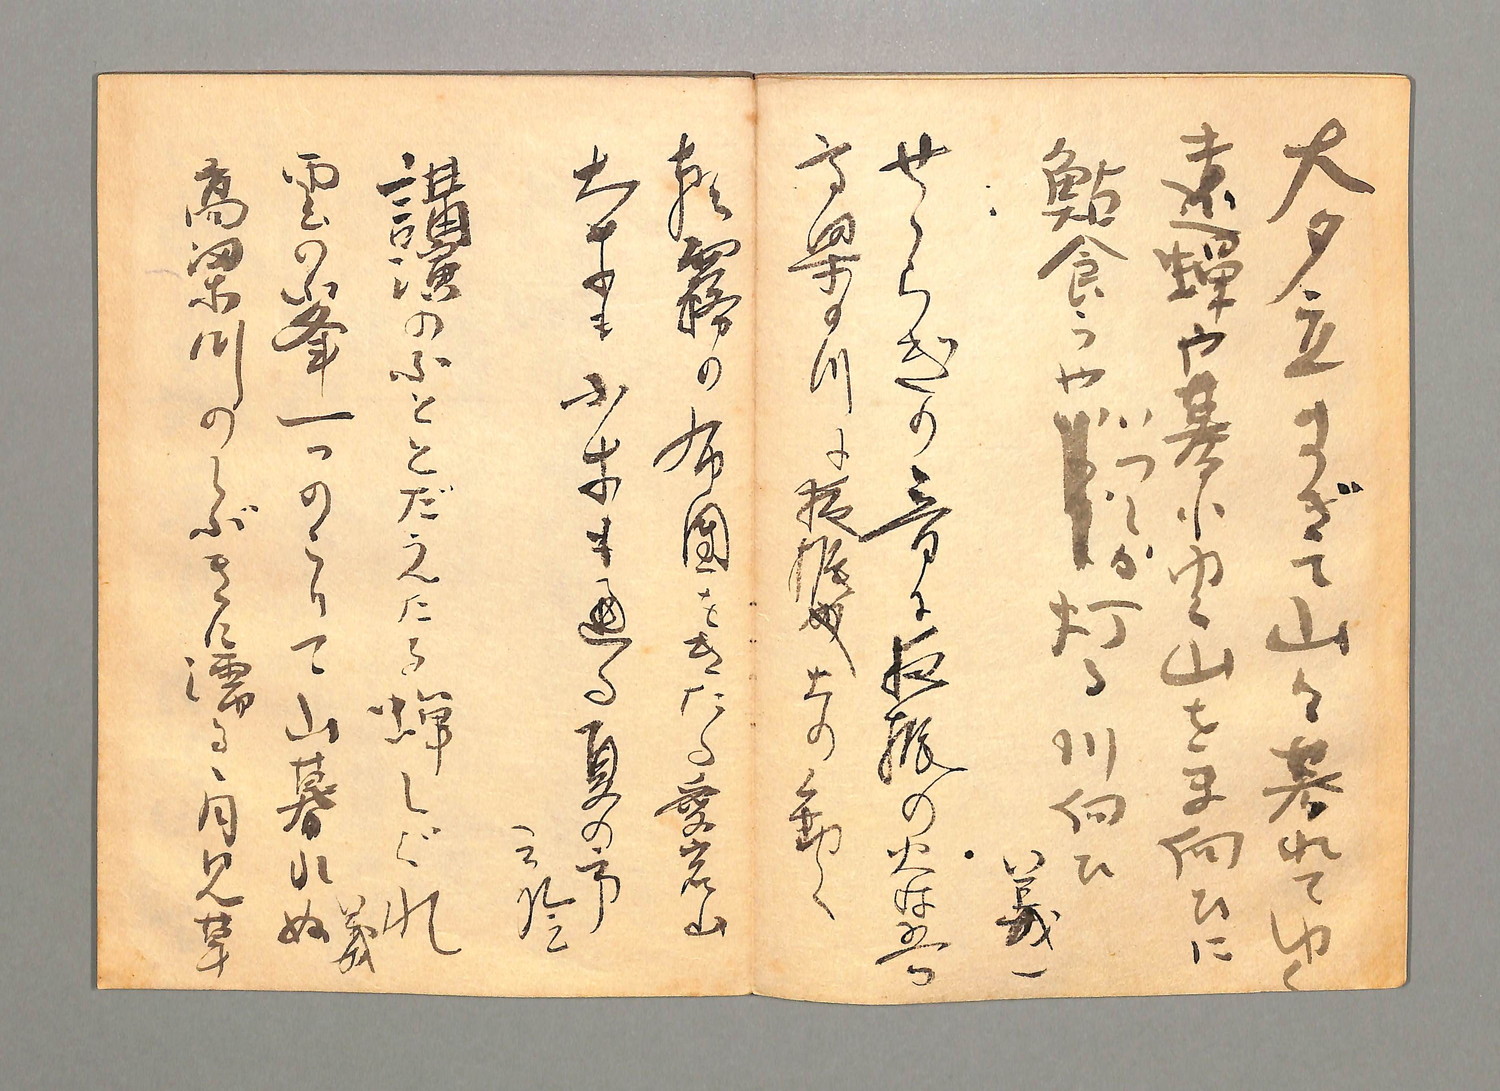 大夕立すぎて山々暮れてゆく
遠蝉や暮れゆく山をま向ひに
鮎食うやいつしか灯る川向ひ
義一
せゝらぎの音に夜振の火は遠し
高梁の川に夜振火七つ動く
朝霧の布団をきたる愛宕山
大牛も小牛も通る夏の市
講演のふととだえたる蝉しぐれ
雲の峯一つのこりて山暮れぬ
義
高梁川のしぶきに濡るゝ月見草